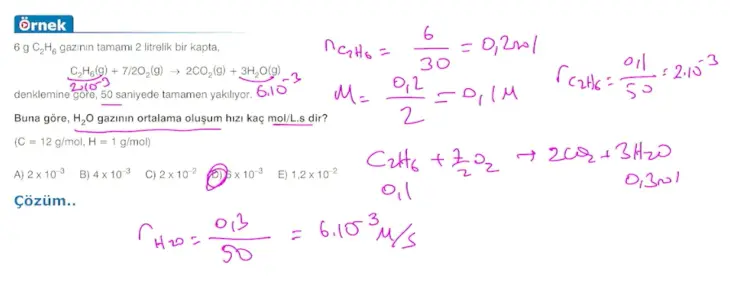 Örnek
6 g C₂H₆ gazının tamamı 2 litrelik bir kapta,
C₂H₆(g) + 7/2O₂(g) → 2CO₂(g) + 3H₂O(g)
2·10⁻³
6.10⁻³
denklemine göre, 50 saniyede tamamen yakılıyor.
Buna göre, H₂O gazının ortalama oluşum hızı kaç mol/L.s dir?
(C = 12 g/mol, H = 1 g/mol)
A) 2 x 10⁻³ B) 4 x 10⁻³ C) 2 x 10⁻² D) 6 x 10⁻³ E) 1,2 x 10⁻²
Çözüm..
n C₂H₆ = 6/30 = 0,2 mol
M = 0,2/2 = 0,1 M
r C₂H₆ = 0,1/50 = 2.10⁻³
C₂H₆ + 7/2 O₂ → 2CO₂ + 3H₂O
0,1 0,3 mol
r H₂O = 0,3/50 = 6.10⁻³ M/s